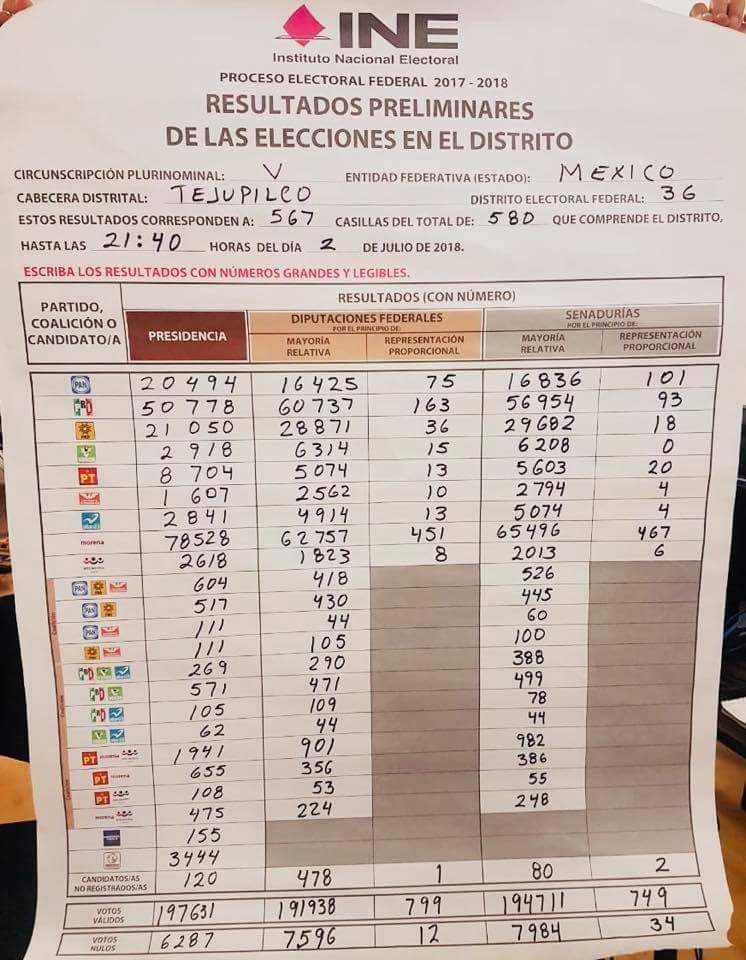 INE
Instituto Nacional Electoral
PROCESO ELECTORAL FEDERAL 2017 - 2018
RESULTADOS PRELIMINARES
DE LAS ELECCIONES EN EL DISTRITO
CIRCUNSCRIPCIÓN PLURINOMINAL: V ENTIDAD FEDERATIVA (ESTADO): MEXICO
CABECERA DISTRITAL: TEJUPILCO DISTRITO ELECTORAL FEDERAL: 36
ESTOS RESULTADOS CORRESPONDEN A: 567 CASILLAS DEL TOTAL DE: 580 QUE COMPRENDE EL DISTRITO,
HASTA LAS 21:40 HORAS DEL DÍA 2 DE JULIO DE 2018.
ESCRIBA LOS RESULTADOS CON NÚMEROS GRANDES Y LEGIBLES.
PARTIDO, COALICIÓN O CANDIDATO/A
RESULTADOS (CON NÚMERO)
PRESIDENCIA
DIPUTACIONES FEDERALES
POR EL PRINCIPIO DE:
MAYORÍA RELATIVA
REPRESENTACIÓN PROPORCIONAL
SENADURÍAS
POR EL PRINCIPIO DE:
MAYORÍA RELATIVA
REPRESENTACIÓN PROPORCIONAL
PAN 20 494 16 425 75 16 836 101
PRI 50 778 60 737 163 56 954 93
PRD 21 050 28 871 36 29 682 18
2 918 6 314 15 6 208 0
PT 8 704 5 074 13 5 603 20
1 607 2 562 10 2 794 4
2 841 4 914 13 5074 4
morena 78528 62 757 451 65 496 467
2618 1 823 8 2013 6
PAN PRD 604 418 526
PAN PRD 517 430 445
PAN 111 44 60
PRD 111 105 100
PRI 269 290 388
PRI 571 471 499
PRI 105 109 78
62 44 44
PT morena 1941 901 982
PT morena 655 356 386
PT 108 53 55
morena 475 224 248
155
3444
CANDIDATOS/AS NO REGISTRADOS/AS 120 478 1 80 2
VOTOS VÁLIDOS 197631 191938 799 194711 749
VOTOS NULOS 6287 7596 12 7984 34